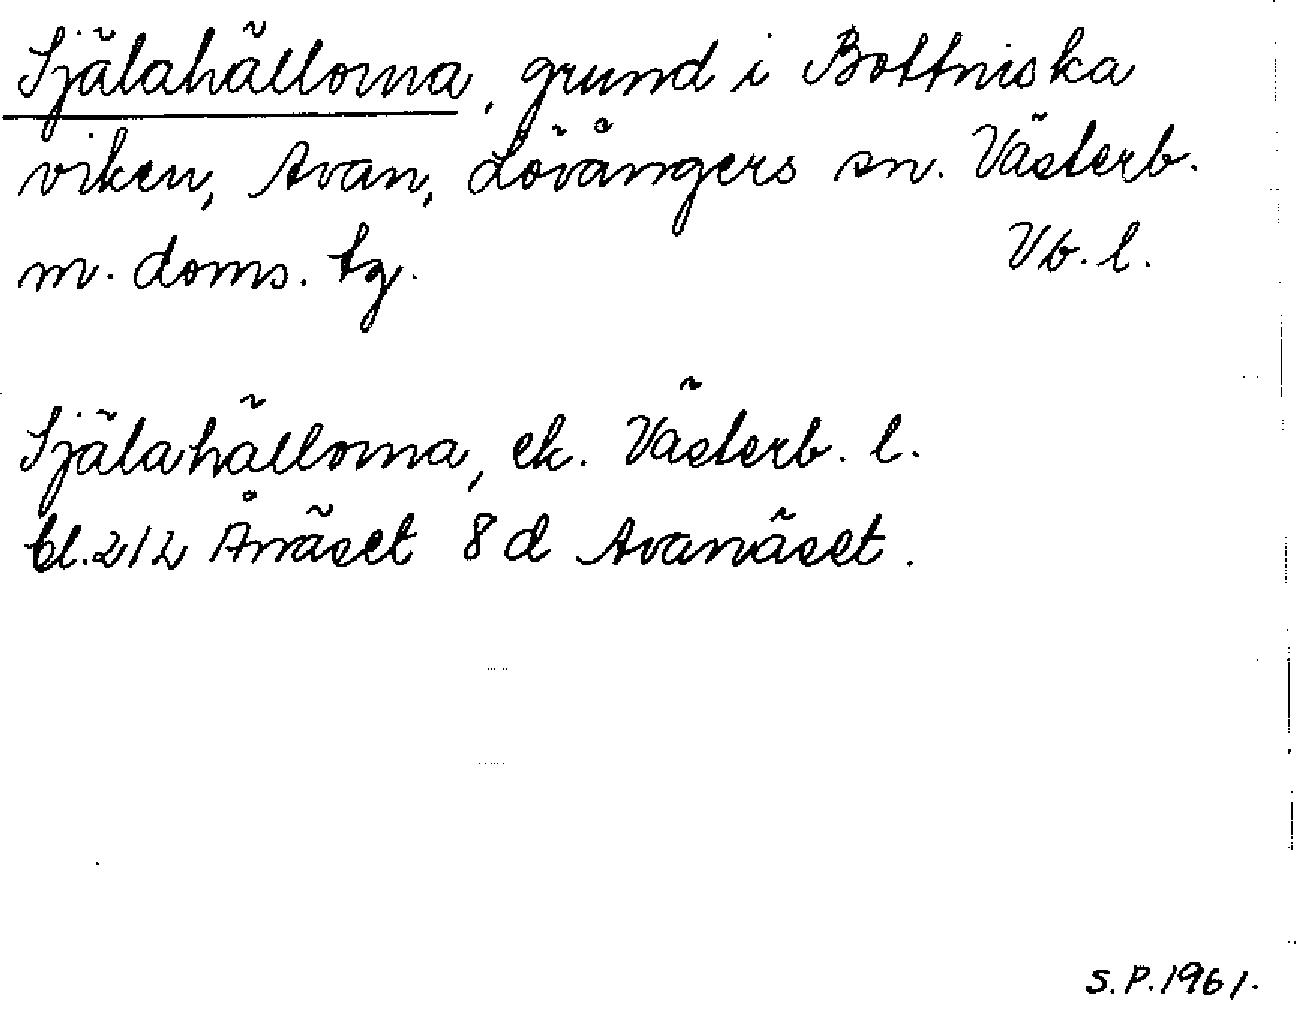 Själahällorna, grund i Bottniska
viken, Avan, Lövångers sn. Västerb.
m. doms. tg. Vb. l.
Själahällorna, ek. Västerb. l.
bl. 212 Ånäset 8 d Avanäset.
S.P. 1961.